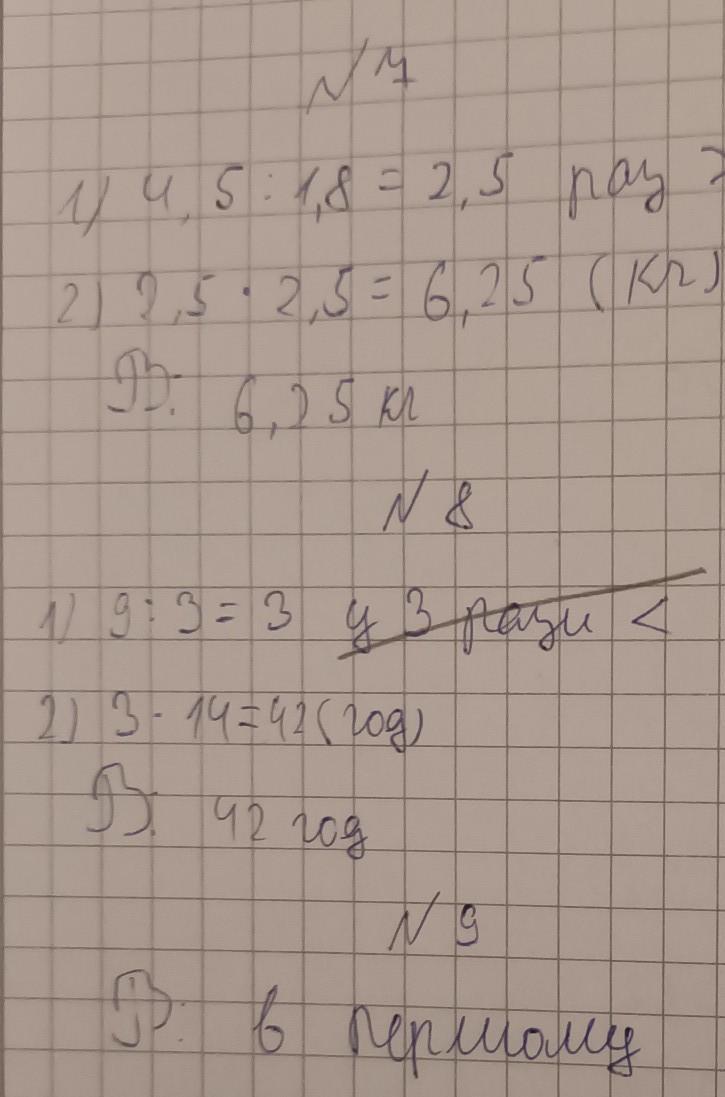 N 7
1) 4,5 : 1,8 = 2,5 раз >
2) 2,5 · 2,5 = 6,25 (кг)
В: 6,25 кг
N 8
1) 9 : 3 = 3 у 3 рази <
2) 3 · 14 = 42 (год)
В: 42 год
N 9
В: в першому